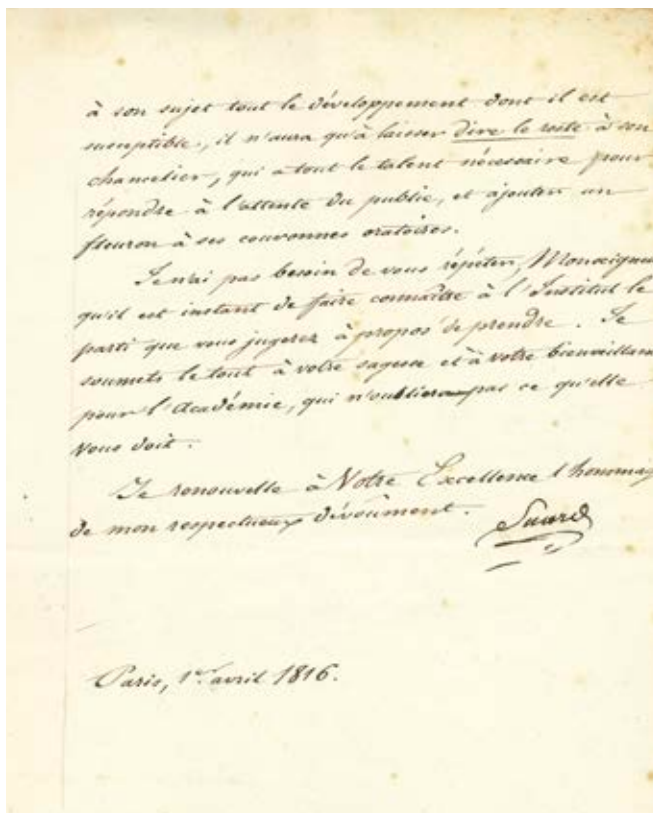 à son sujet tout le développement dont il est
susceptible, il n'aura qu'à laisser dire le reste à son
chancelier, qui a tout le talent nécessaire pour
répondre à l'attente du public, et ajouter un
fleuron à ses couronnes oratoires.
Je n'ai pas besoin de vous répéter, Monseigneu
qu'il est instant de faire connaître à l'Institut le
parti que vous jugerez à propos de prendre. Je
soumets le tout à votre sagesse et à votre bienveillan
pour l'Académie, qui n'oubliera pas ce qu'elle
vous doit.
Je renouvelle à Votre Excellence l'hommag
de mon respectueux dévoûment.
Suard
Paris, 1er avril 1816.